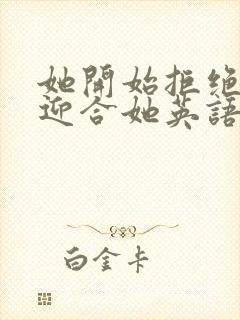 她開始拒絕
迎合她英語
白金卡